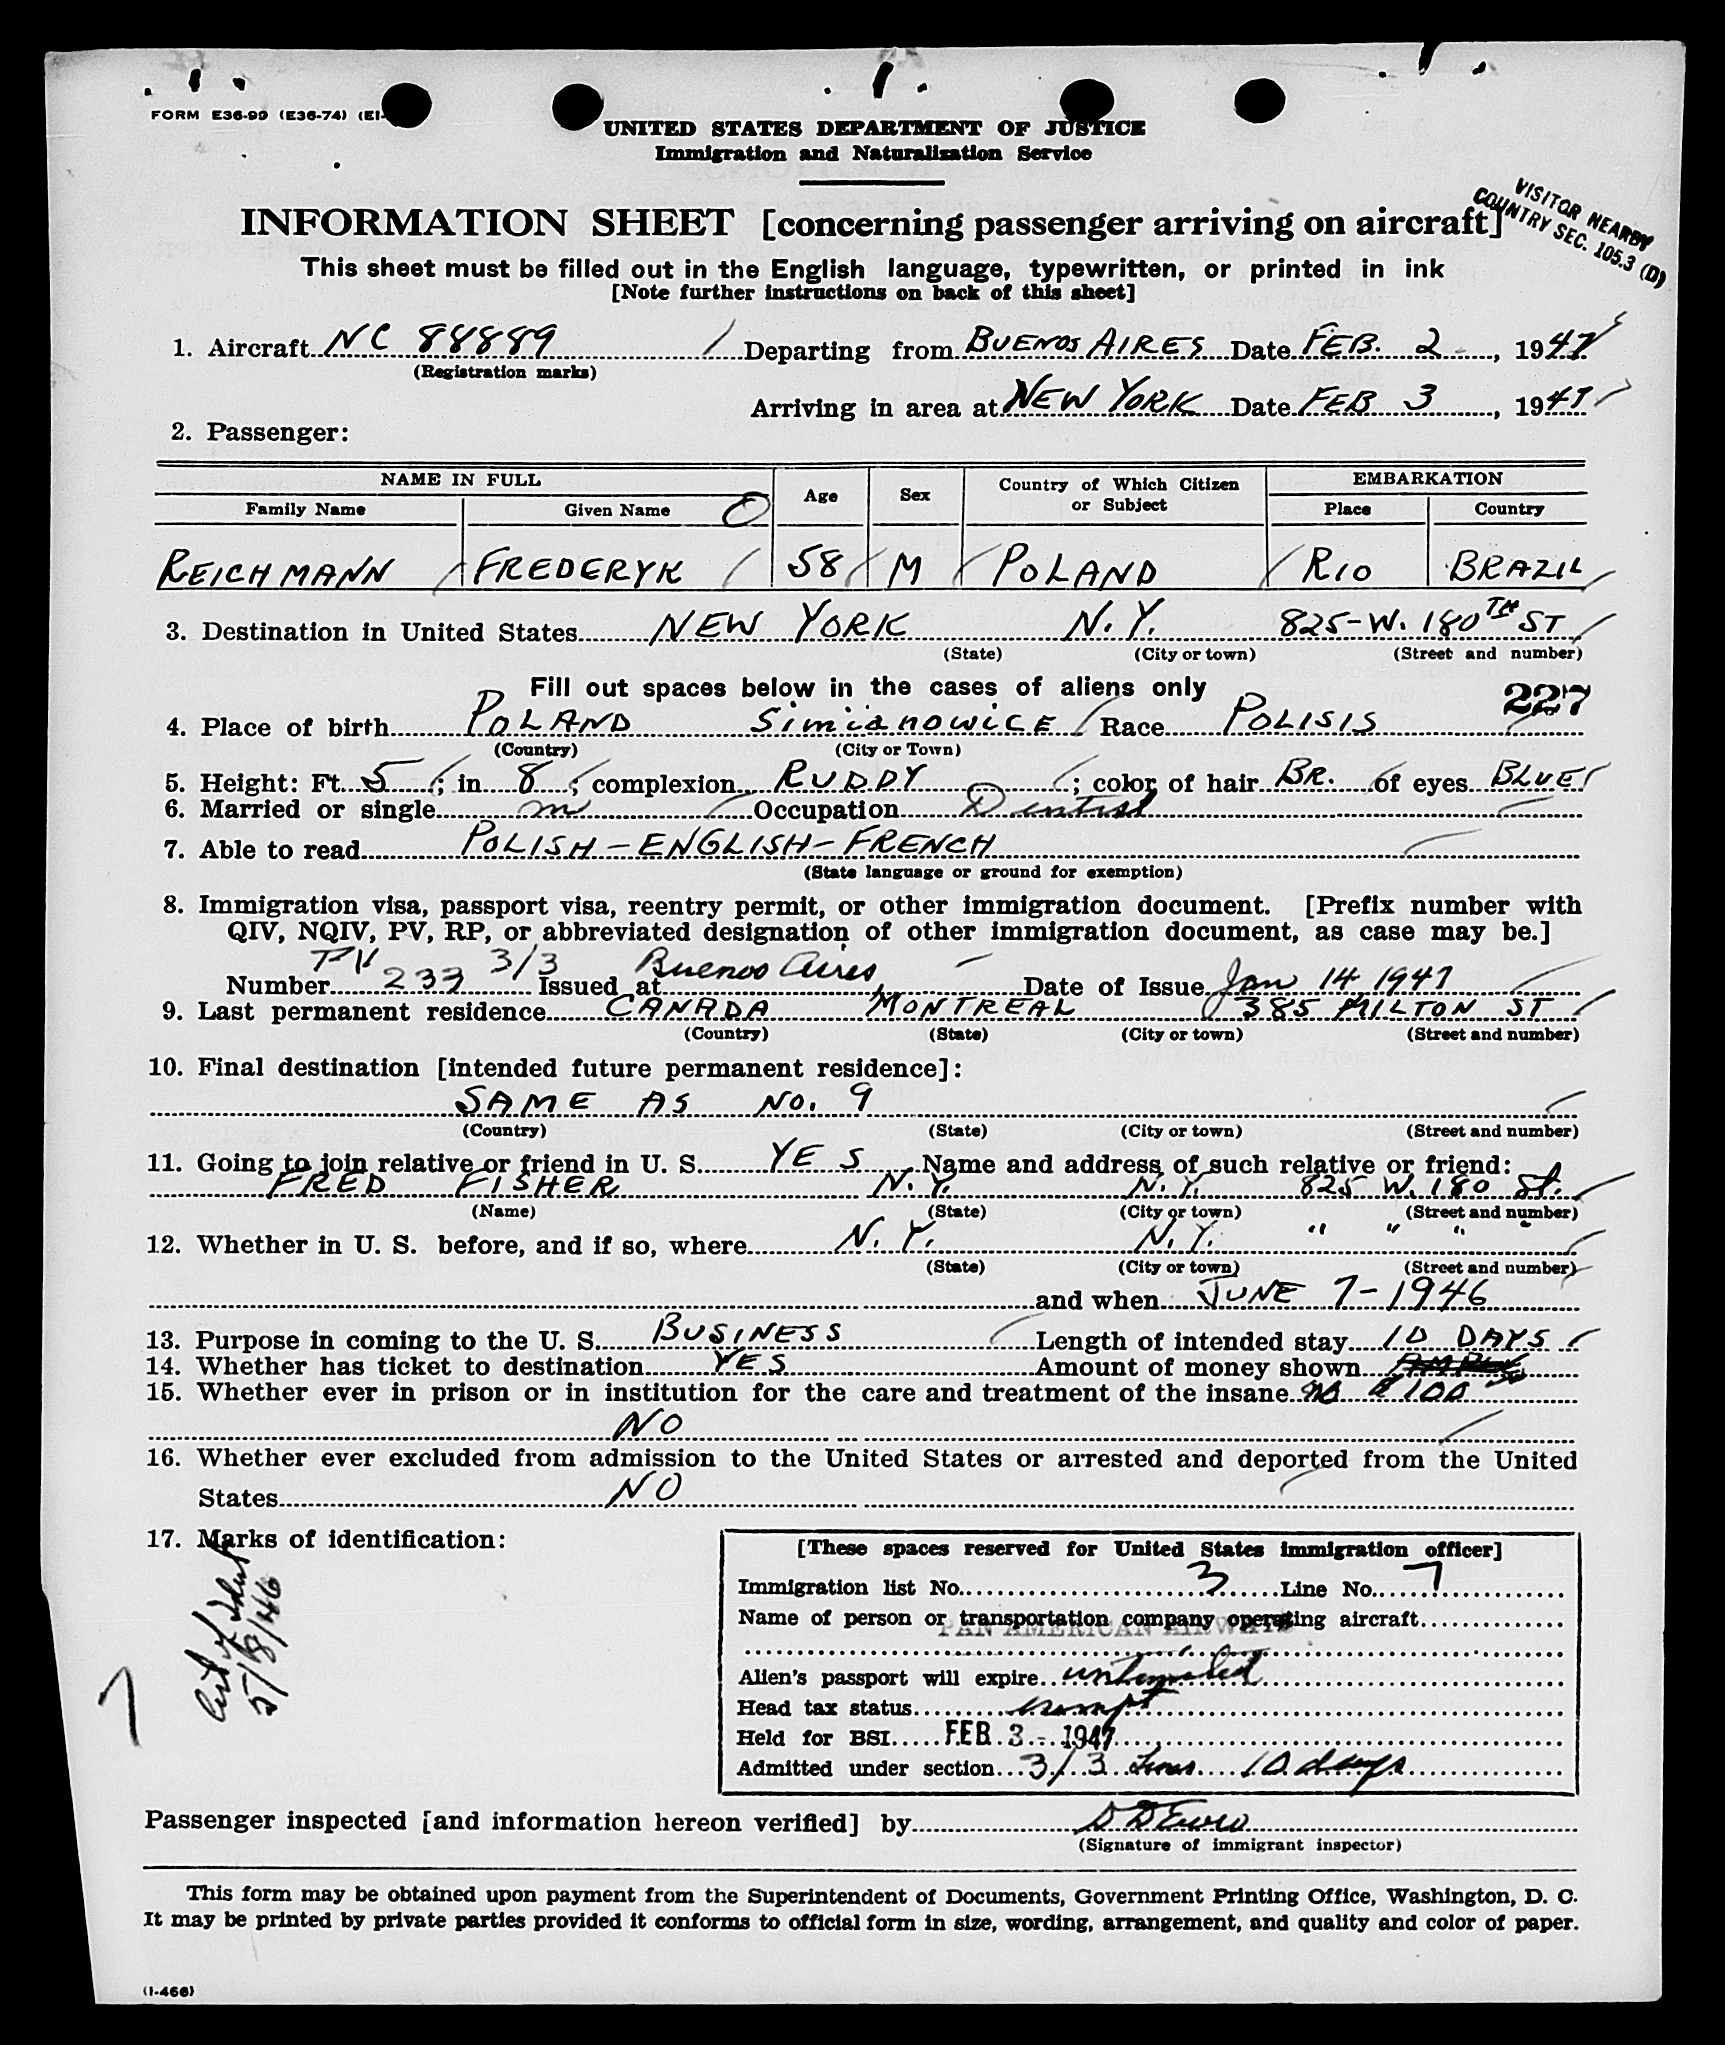 FORM E36-99 (E36-74) (E1-
UNITED STATES DEPARTMENT OF JUSTICE
Immigration and Naturalization Service
INFORMATION SHEET [concerning passenger arriving on aircraft]
VISITOR NEARBY
COUNTRY SEC. 105.3 (D)
This sheet must be filled out in the English language, typewritten, or printed in ink
[Note further instructions on back of this sheet]
1. Aircraft NC 88889 Departing from BUENOS AIRES Date FEB. 2, 1947
(Registration marks)
Arriving in area at NEW YORK Date FEB 3, 1947
2. Passenger:
NAME IN FULL Age Sex Country of Which Citizen or Subject EMBARKATION
Family Name Given Name Place Country
REICHMANN FREDERYK 58 M POLAND RIO BRAZIL
3. Destination in United States NEW YORK N.Y. 825-W. 180TH ST
(State) (City or town) (Street and number)
Fill out spaces below in the cases of aliens only
227
4. Place of birth POLAND Simianowice Race POLISIS
(Country) (City or Town)
5. Height: Ft. 5; in 8; complexion RUDDY; color of hair BR. of eyes BLUE
6. Married or single m Occupation Dentist
7. Able to read POLISH-ENGLISH-FRENCH
(State language or ground for exemption)
8. Immigration visa, passport visa, reentry permit, or other immigration document. [Prefix number with
QIV, NQIV, PV, RP, or abbreviated designation of other immigration document, as case may be.]
Number PV 233 3/3 Issued at Buenos Aires, Date of Issue Jan 14 1947
9. Last permanent residence CANADA MONTREAL 385 MILTON ST
(Country) (State) (City or town) (Street and number)
10. Final destination [intended future permanent residence]:
SAME AS NO. 9
(Country) (State) (City or town) (Street and number)
11. Going to join relative or friend in U. S. YES Name and address of such relative or friend:
FRED FISHER N.Y. N.Y. 825 W. 180 St.
(Name) (State) (City or town) (Street and number)
12. Whether in U. S. before, and if so, where N.Y. N.Y. " " " "
(State) (City or town) (Street and number)
and when JUNE 7-1946
13. Purpose in coming to the U. S. BUSINESS Length of intended stay 10 DAYS
14. Whether has ticket to destination YES Amount of money shown
15. Whether ever in prison or in institution for the care and treatment of the insane no $100
NO
16. Whether ever excluded from admission to the United States or arrested and deported from the United
States NO
17. Marks of identification:
5/8/46
7
[These spaces reserved for United States immigration officer]
Immigration list No. 3 Line No. 7
Name of person or transportation company operating aircraft
PAN AMERICAN AIRWAYS
Alien's passport will expire unlimited
Head tax status exempt
Held for BSI FEB 3 - 1947
Admitted under section 3/3 10 days
Passenger inspected [and information hereon verified] by
(Signature of immigrant inspector)
This form may be obtained upon payment from the Superintendent of Documents, Government Printing Office, Washington, D. C.
It may be printed by private parties provided it conforms to official form in size, wording, arrangement, and quality and color of paper.
(I-466)